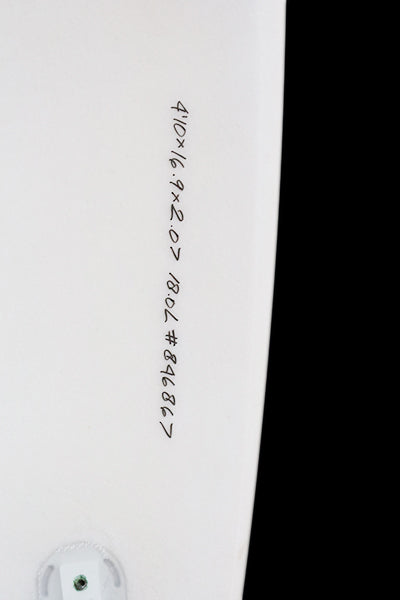 4'10×16.9×2.07 18.0L #896867